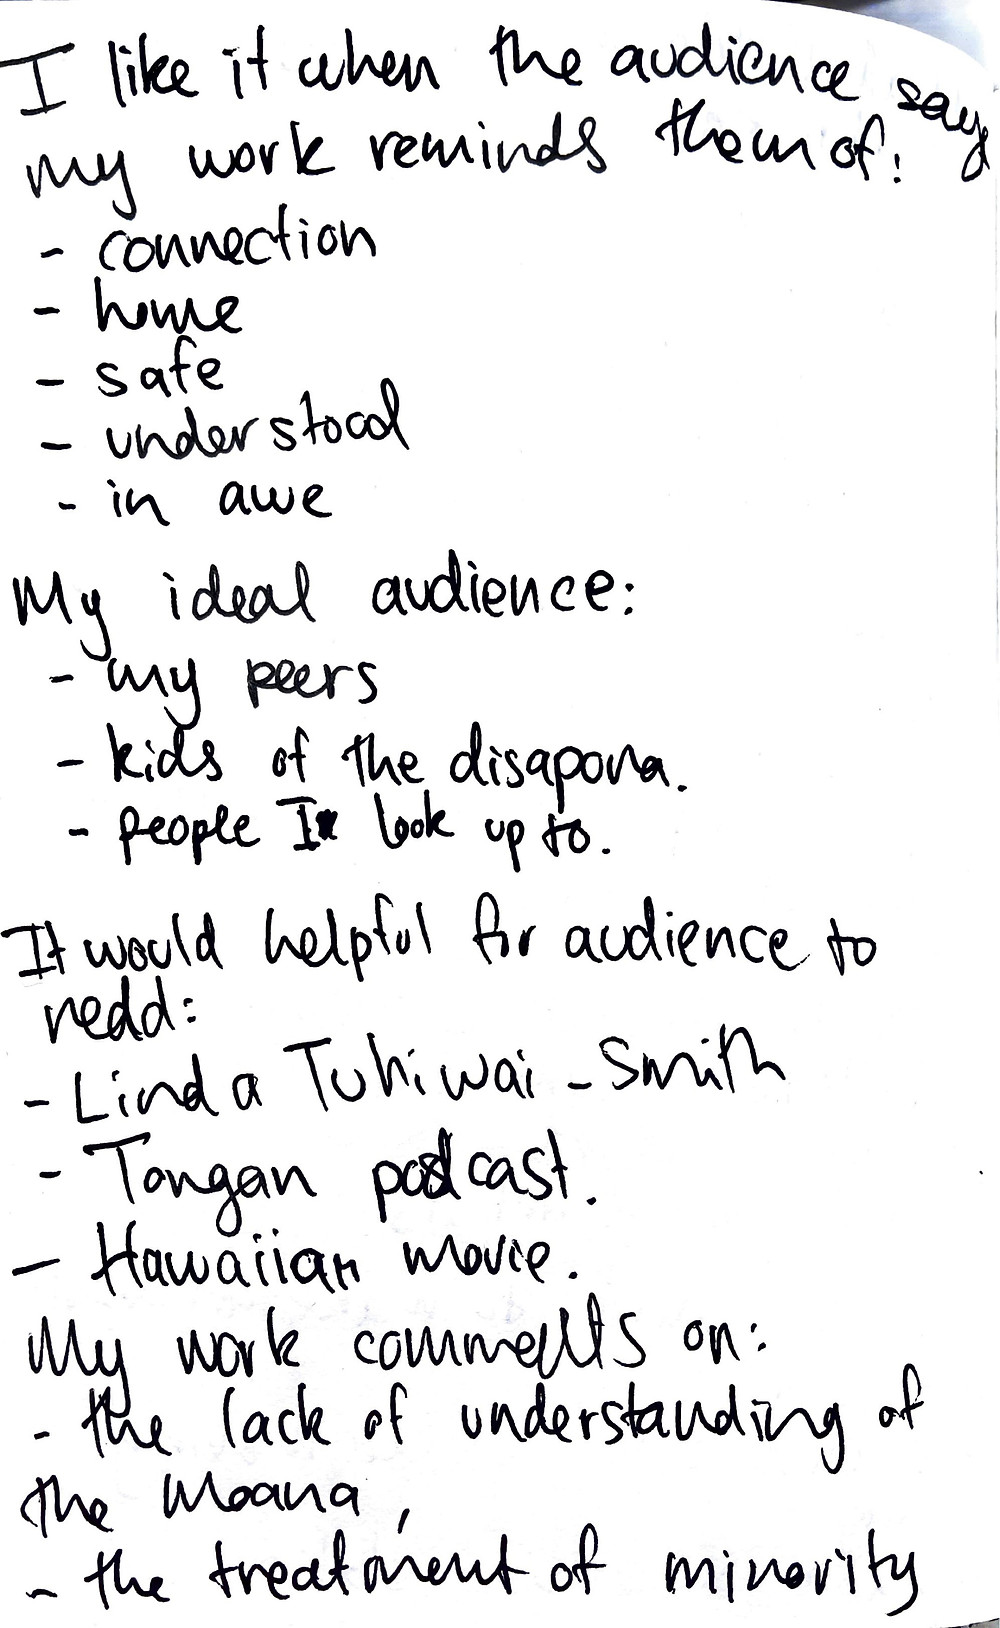 I like it when the audience say
my work reminds them of:
- connection
- home
- safe
- understood
- in awe
My ideal audience:
- my peers
- kids of the disapora.
- people I look up to.
It would helpful for audience to
redd:
- Linda Tuhiwai-Smith
- Tongan podcast.
- Hawaiian movie.
My work comments on:
- the lack of understanding of
the Moana,
- the treatment of minority